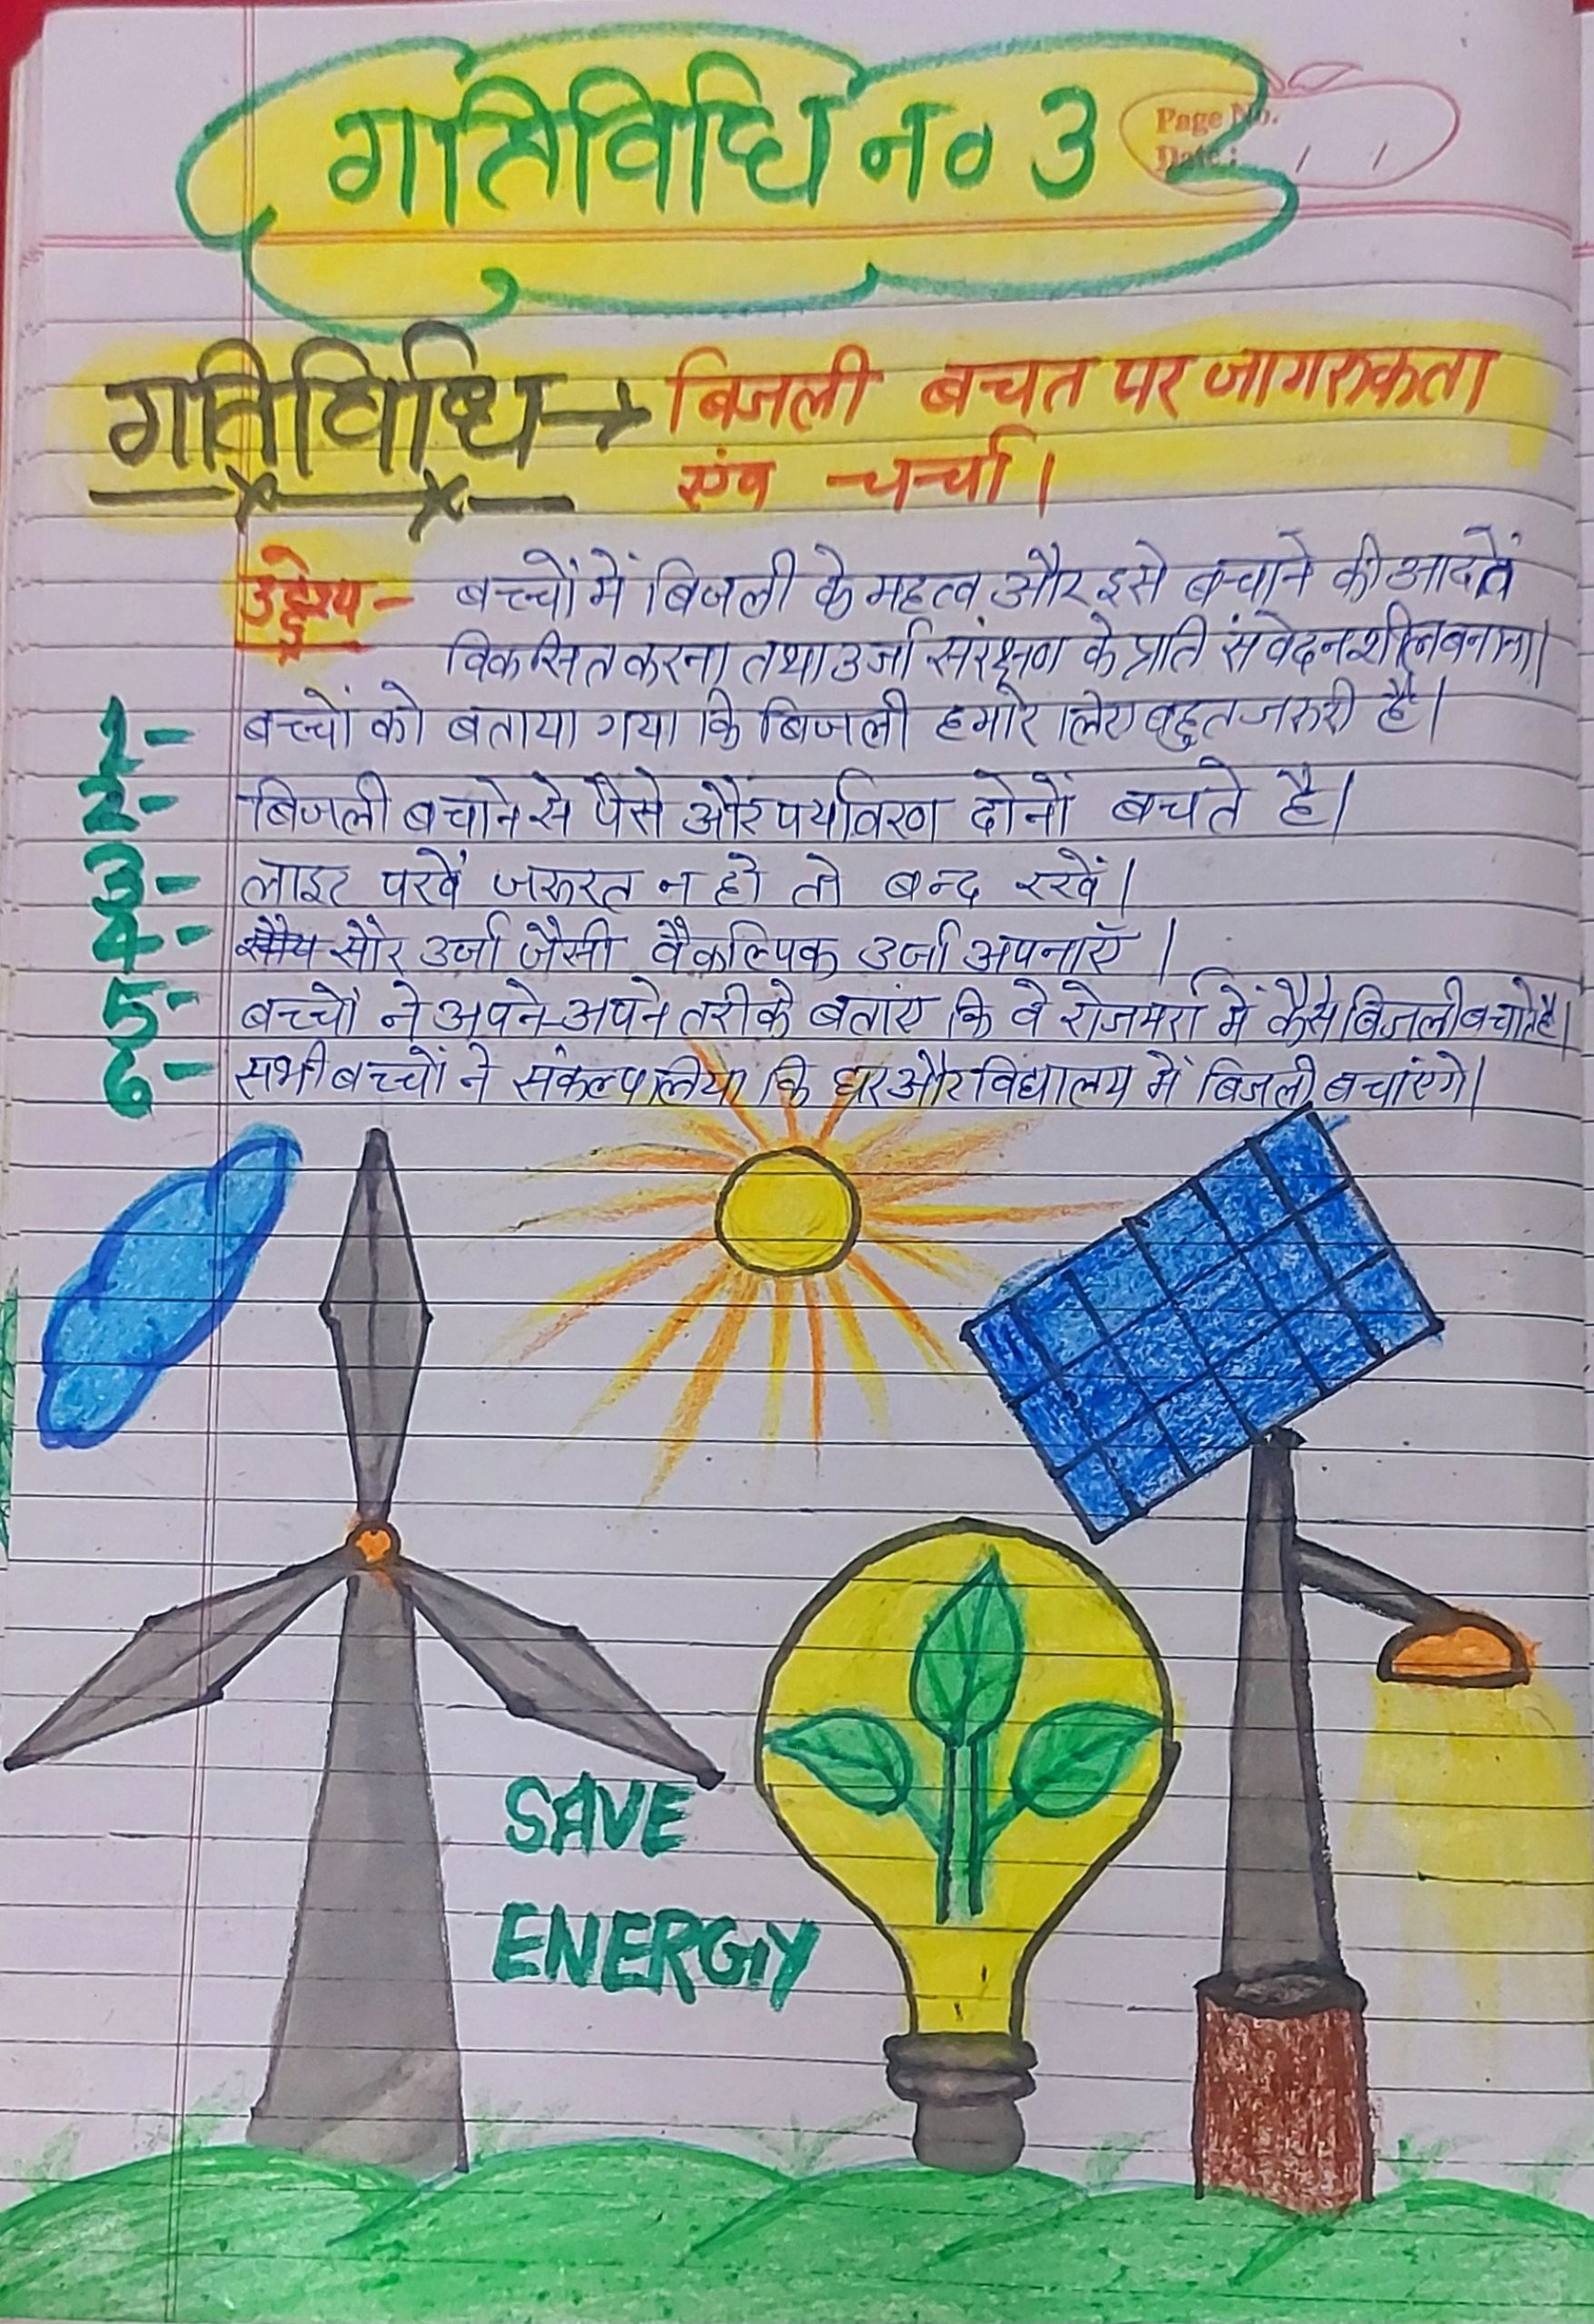 गतिविधि न० 3
Page No.
Date: / /
गतिविधि → बिजली बचत पर जागरुकता
एंव चर्चा।
उद्देश्य - बच्चों में बिजली के महत्व और इसे बचाने की आदतें
विकसित करना तथा उर्जा संरक्षण के प्रति संवेदनशील बनाना।
1- बच्चों को बताया गया कि बिजली हमारे लिए बहुत जरुरी है।
2- बिजली बचाने से पैसे और पर्यावरण दोनों बचते है।
3- लाइट पखें जरूरत न हो तो बन्द रखें।
4- सौर उर्जा जैसी वैकल्पिक उर्जा अपनाएँ।
5- बच्चों ने अपने-अपने तरीके बताएं कि वे रोजमर्रा में कैसे बिजली बचाते है।
6- सभी बच्चों ने संकल्प लिया कि घर और विद्यालय में बिजली बचाएंगे।
SAVE
ENERGY